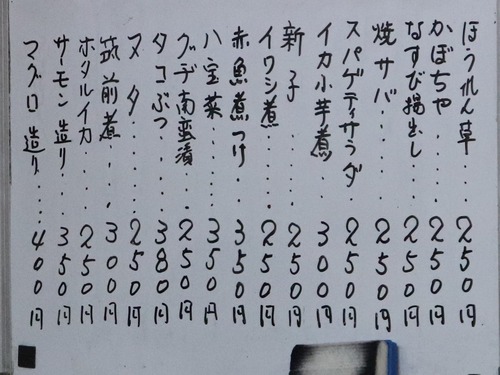 ほうれん草......250円
かぼちゃ.....250円
なすび揚出し...250円
焼サバ......250円
スパゲティサラダ.250円
イカ小芋煮...300円
新子......250円
イワシ煮....250円
赤魚煮つけ...350円
八宝菜.....350円
グデ南蛮漬...250円
タコぶつ....380円
ヌタ......250円
筑前煮.....300円
ホタルイカ....250円
サーモン造り...350円
マグロ造り....400円